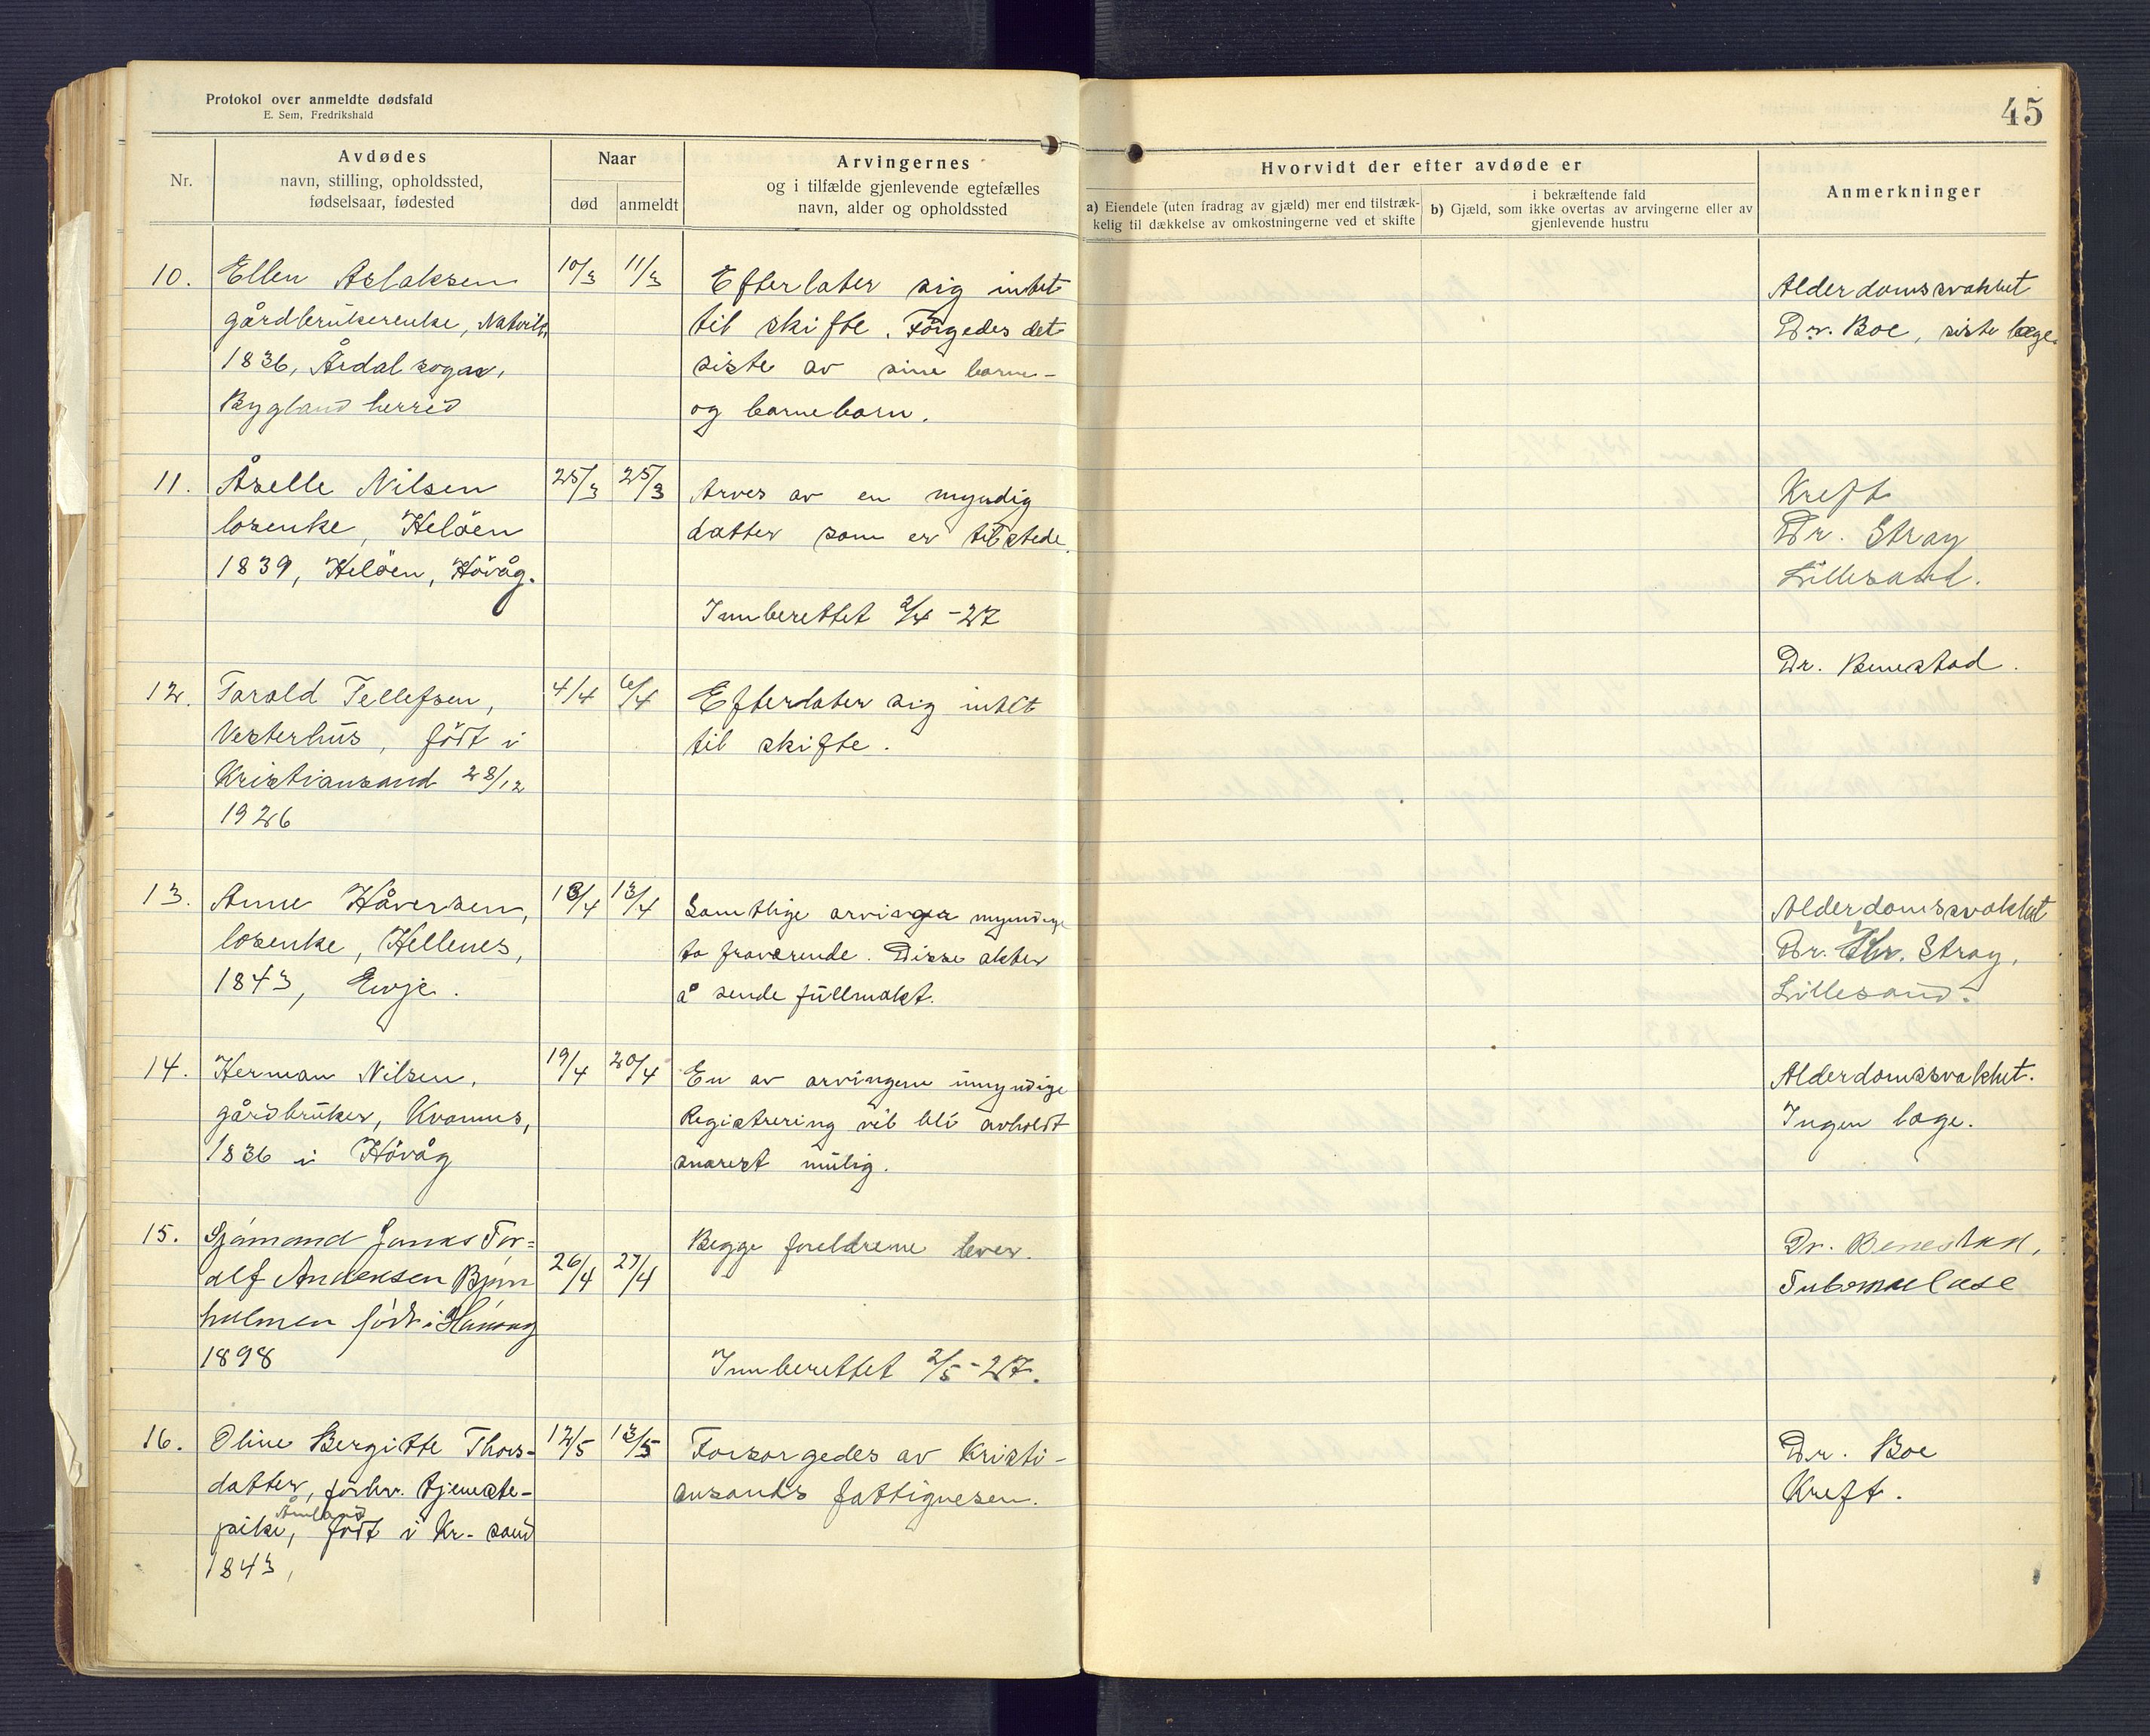 Protokol over anmeldte dødsfald
E. Sem, Fredrikshald
45
Nr.
Avdødes
navn, stilling, opholdssted,
fødselsaar, fødested
Naar
død
anmeldt
Arvingernes
og i tilfælde gjenlevende egtefælles
navn, alder og opholdssted
Hvorvidt der efter avdøde er
a) Eiendele (uten fradrag av gjæld) mer end tilstræk-
kelig til dækkelse av omkostningerne ved et skifte
i bekræftende fald
b) Gjæld, som ikke overtas av arvingerne eller av
gjenlevende hustru
Anmerkninger
10.
Ellen Aslaksen
gårdbrukerenke,
1836, Årdal sogn,
Bygland herred
10/3
11/3
Efterlater sig intet
til skifte. Forsgedes det
siste av sine barn-
og barnebarn.
Alderdomssvakhet
Dr. Boe, siste læge.
11.
Åselle Nilsen
losenke, Helöen
1839, Helöen, Hövåg.
25/3
25/3
Arves av en myndig
datter som er tilstede.
Innberettet 2/4 -27
Kreft
Dr. Stray
Lillesand.
12.
Tarald Tellefsen,
Vesterhus, födt i
Kristiansand 28/12
1926
4/4
6/4
Efterlater sig intet
til skifte.
Dr. Benestad.
13.
Anne Håversen,
losenke, Hellenes,
1843, Evje.
13/4
13/4
Samtlige arvinger myndige
to fraværende. Disse akter
å sende fullmakt.
Alderdomssvakhet
Dr. Chr. Stray,
Lillesand.
14.
Herman Nilsen,
gårdbruker, Kvannes,
1836 i Hövåg
19/4
20/4
En av arvingene umyndige
Registrering vil bli avholdt
snarest mulig.
Alderdomssvakhet.
Ingen læge.
15.
Sjömand Jonas Tor=
alf Andersen Björn
holmen födt i Høivåg
1898
26/4
27/4
Begge foreldrene lever.
Innberettet 2/5 -27.
Dr. Benestad,
16.
Oline Bergitte Thors-
datter, forhv. tjeneste-
pike, Åmland födt i Kr-sand
1843,
12/5
13/5
Forsorgedes av Kristi-
ansands fattigvesen.
Dr. Boe
Kreft.